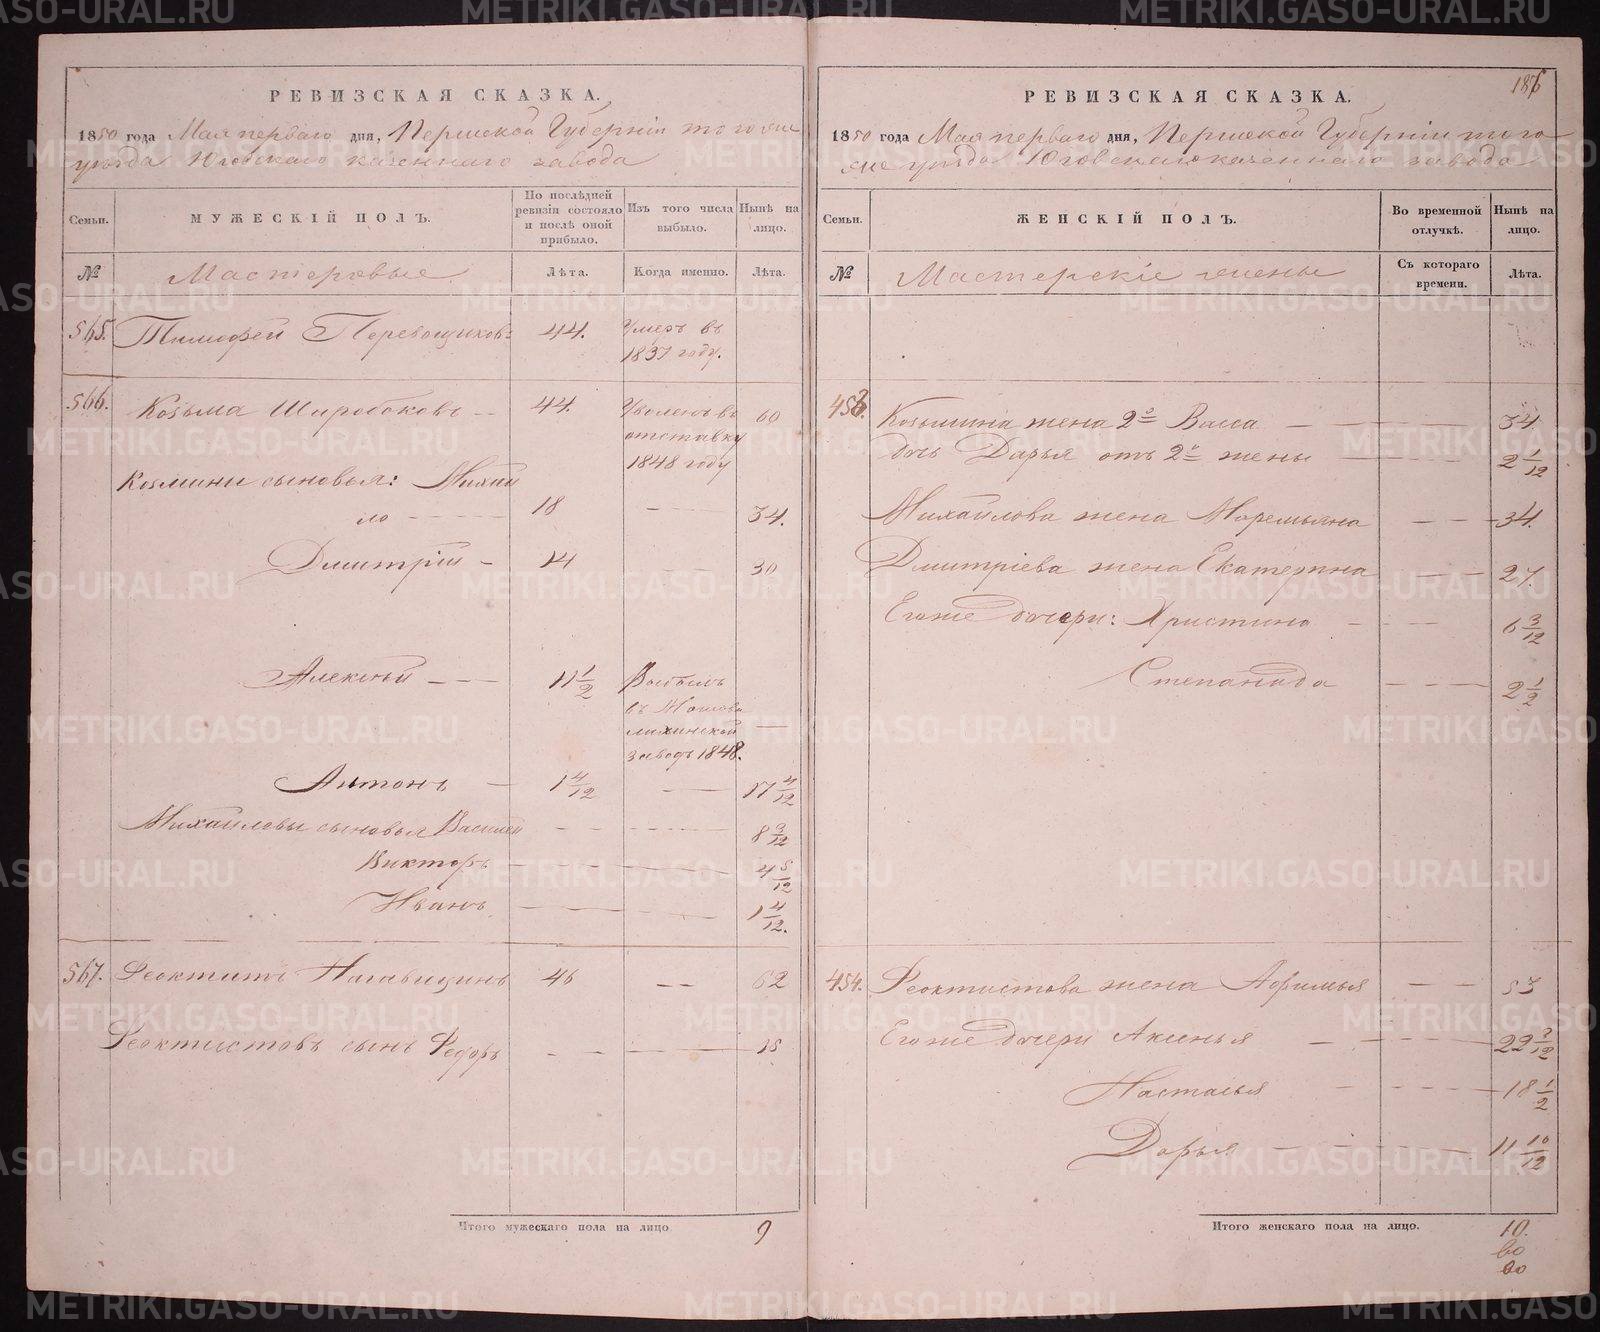 РЕВИЗСКАЯ СКАЗКА.
1850 года Мая перваго дня, Пермской Губерніи того же
уѣзда Юговскаго казеннаго завода
Семьи.
МУЖЕСКІЙ ПОЛЪ.
По послѣдней ревизіи состояло и послѣ оной прибыло.
Изъ того числа выбыло.
Нынѣ на лицо.
№
Мастеровые
Лѣта.
Когда именно.
Лѣта.
565. Тимофей Перевощиковъ 44. Умеръ въ
1837 году.
566. Козьма Широбоковъ — 44. Уволенъ въ 60
отставку
1848 году
Козмины сыновья: Михай
ло — 18 — 34.
Дмитрій — 14 — 30
Алексѣй — 11 1/2 Выбылъ
въ
завод 1848.
Антонъ — 1 4/12 — 17 4/12
Михайловы сыновья Василей — — 8 9/12
Викторъ — — 4 5/12
Иванъ — — 1 4/12.
567. Феоктистъ 46 — 62
Феоктистовъ сынъ Федоръ — — 15
Итого мужескаго пола на лицо 9
РЕВИЗСКАЯ СКАЗКА.
1850 года Мая перваго дня, Пермской Губерніи того
же уѣзда Юговскаго казеннаго завода
Семьи.
ЖЕНСКІЙ ПОЛЪ.
Во временной отлучкѣ.
Нынѣ на лицо.
№
Мастерскіе жены
Съ котораго времени.
Лѣта.
453. Козьмина жена 2я Васса — 34
дочь Дарья отъ 2й жены — 2 1/12
Михайлова жена Маремьяна — 34.
Дмитріева жена Екатерина — 27.
Егоже дочери: Христина — 6 3/12
Степанида — 2 1/2
454. Феоктистова жена Афимья — 53
Егоже дочери Аксинья — 22
Настасья — 18 1/2
Дарья — 11 10/12
Итого женскаго пола на лицо. 10.
METRIKI.GASO-URAL.RU